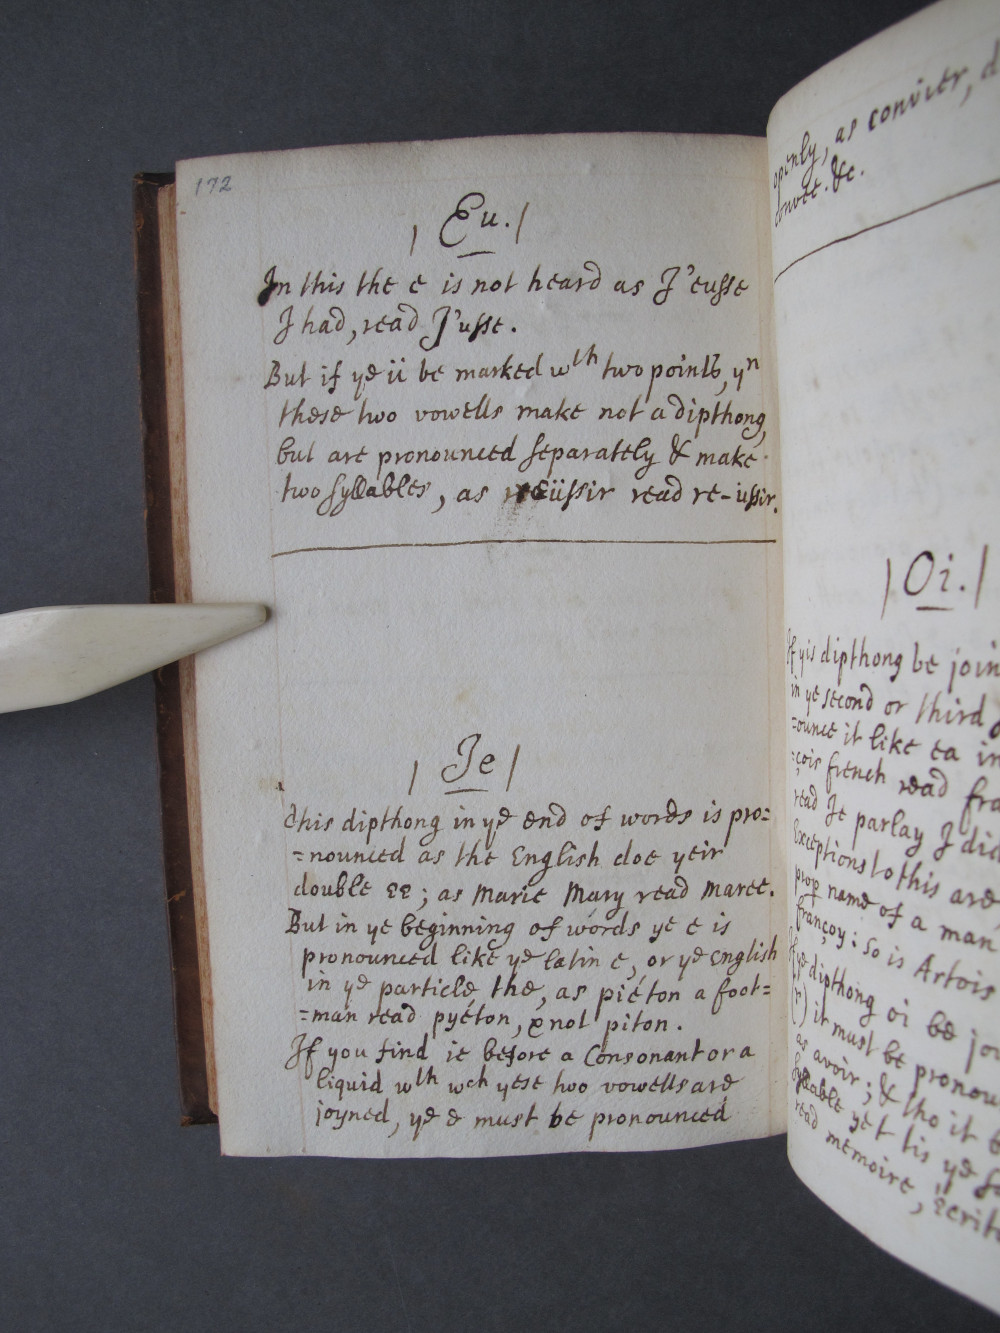 172
Eu.
In this the e is not heard as J'eusse
I had, read J'usse.
But if ye ü be marked wth two points, yn
these two vowells make not a dipthong,
but are pronounced separately & make
two syllables, as reüssir read re-ussir.
Je
This dipthong in ye end of words is pro=
=nounced as the English doe yeir
double ee; as Marie Mary read Maree.
But in ye beginning of words ye e is
pronounced like ye latin e, or ye English
in ye particle the, as piéton a foot=
=man read pyéton, & not piton.
If you find ie before a Consonant or a
liquid wth wch yese two vowells are
joyned, ye e must be pronounced
openly, as convier,
convee. &c.
Oi.
If yis dipthong be join
in ye second or third
=ounce it like ea in
=çois french read fra
read Je parlay I did
Exceptions to this are
prop name of a man
françoy: So is Artois
If ye dipthong oi be jo
(r) it must be pronou
as avoir; & tho it
syllable yet tis ye
read memoire,